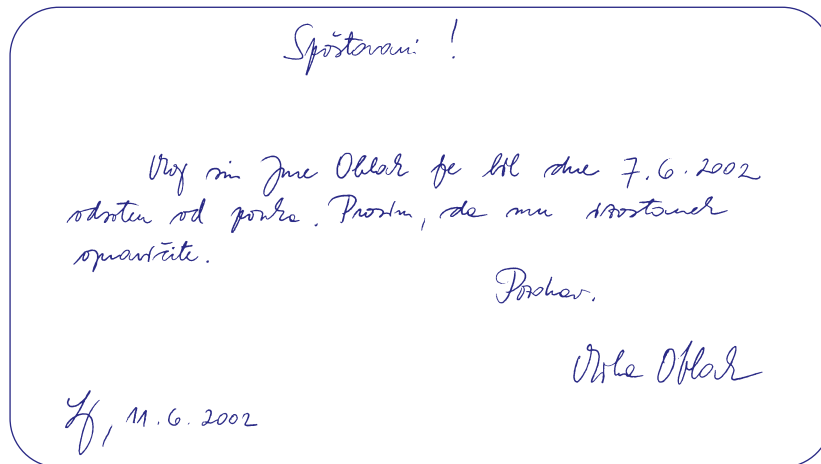 Spoštovani!
Moj sin Jure Oblak je bil dne 7.6.2002
odsoten od pouka. Prosim, da mu izostanek
opravičite.
Pozdrav.
Miha Oblak
Lj, 11.6.2002